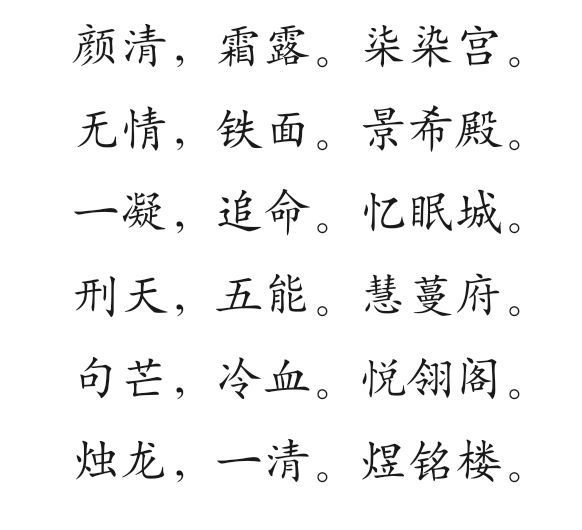 颜清，霜露。柒染宫。
无情，铁面。景希殿。
一凝，追命。忆眠城。
刑天，五能。慧蔓府。
句芒，冷血。悦翎阁。
烛龙，一清。煜铭楼。